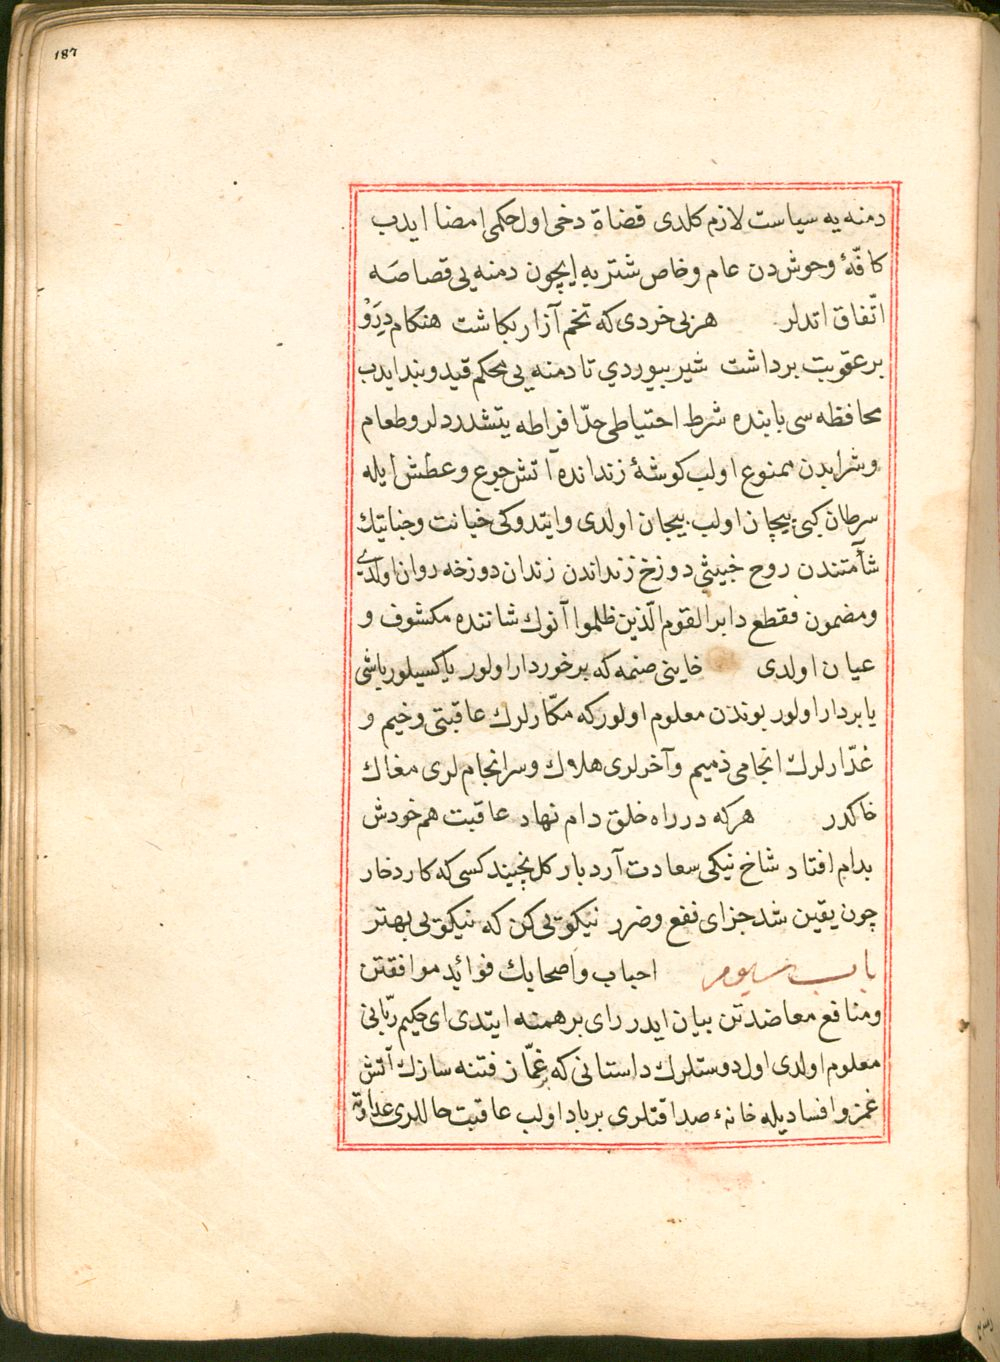 187
دمنه‌يه سياست لازم كلدى قضاة دخى اول حكمى امضا ايدب
كافّهٔ وحوش دن عام وخاص شتربه ايچون دمنه يى قصاصه
اتّفاق اتدلر هر بى خردى كه تخم آزار بكاشت هنكام دِرَوْ
بر عقوبت برداشت شير بيوردي تا دمنه يى محكم قيد وبند ايدب
محافظه سى بابنده شرط احتياطى حدّ افراطه يتشدردلر وطعام
وشرابدن ممنوع اولب كوشهٔ زندانده آتش جوع وعطش ايله
سرطان كبى پيچان اولب بيجان اولدى وايتدوكى خيانت وجنايتك
شأمتندن روح خبيثى دوزخ زنداندن زندان دوزخه روان اولدى
ومضمون فقطع دابر القوم الّذين ظلموا آنوك شاننده مكشوف و
عيان اولدى خاينى صنمه كه برخوردار اولور ياكسيلور باشى
يا بردار اولور بوندن معلوم اولور كه مكّارلرك عاقبتى وخيم و
غدّارلرك انجامى ذميم وآخرلرى هلاوك وسرانجام لرى مغاك
خاكدر هركه در راه خلق دام نهاد عاقبت هم خودش
بدام افتاد شاخ نيكى سعادت آرد بار كل نچيند كسى كه كارد خار
چون يقين شد جزاى نفع وضرر نيكويى كن كه نيكويى بهتر
باب سيوم احباب واصحابك فوائد موافقتن
ومنافع معاضدتن بيان ايدر راى برهمنه ايتدى اى حكيم ربّانى
معلوم اولدى اول دوستلرك داستانى كه غمّاز فتنه سازك آتش
غمز وافساديله خانهٔ صداقتلرى برباد اولب عاقبت حاللرى عداوته